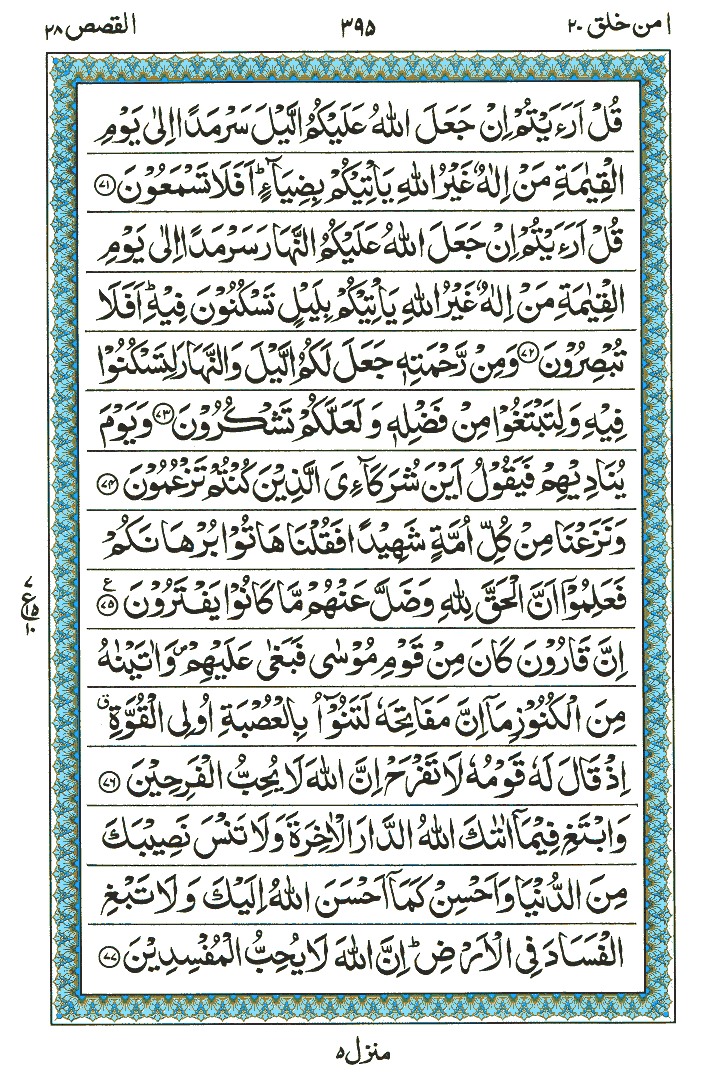 امن خلق ۲۰ ۳۹۵ القصص ۲۸
قُلْ اَرَءَیْتُمْ اِنْ جَعَلَ اللّٰهُ عَلَیْكُمُ الَّیْلَ سَرْمَدًا اِلٰى یَوْمِ
الْقِیٰمَةِ مَنْ اِلٰهٌ غَیْرُ اللّٰهِ یَاْتِیْكُمْ بِضِیَآءٍؕ اَفَلَا تَسْمَعُوْنَ ﴿۷۱﴾
قُلْ اَرَءَیْتُمْ اِنْ جَعَلَ اللّٰهُ عَلَیْكُمُ النَّهَارَ سَرْمَدًا اِلٰى یَوْمِ
الْقِیٰمَةِ مَنْ اِلٰهٌ غَیْرُ اللّٰهِ یَاْتِیْكُمْ بِلَیْلٍ تَسْكُنُوْنَ فِیْهِؕ اَفَلَا
تُبْصِرُوْنَ ﴿۷۲﴾ وَمِنْ رَّحْمَتِهٖ جَعَلَ لَكُمُ الَّیْلَ وَالنَّهَارَ لِتَسْكُنُوْا
فِیْهِ وَلِتَبْتَغُوْا مِنْ فَضْلِهٖ وَلَعَلَّكُمْ تَشْكُرُوْنَ ﴿۷۳﴾ وَیَوْمَ
یُنَادِیْهِمْ فَیَقُوْلُ اَیْنَ شُرَكَآءِیَ الَّذِیْنَ كُنْتُمْ تَزْعُمُوْنَ ﴿۷۴﴾
وَنَزَعْنَا مِنْ كُلِّ اُمَّةٍ شَهِیْدًا فَقُلْنَا هَاتُوْا بُرْهَانَكُمْ
فَعَلِمُوْۤا اَنَّ الْحَقَّ لِلّٰهِ وَضَلَّ عَنْهُمْ مَّا كَانُوْا یَفْتَرُوْنَ ﴿۷۵﴾ ع
۷ ع ۱۵ ۱۰
اِنَّ قَارُوْنَ كَانَ مِنْ قَوْمِ مُوْسٰى فَبَغٰى عَلَیْهِمْ۪ وَاٰتَیْنٰهُ
مِنَ الْكُنُوْزِ مَاۤ اِنَّ مَفَاتِحَهٗ لَتَنُوْٓاُ بِالْعُصْبَةِ اُولِی الْقُوَّةِۗ
اِذْ قَالَ لَهٗ قَوْمُهٗ لَا تَفْرَحْ اِنَّ اللّٰهَ لَا یُحِبُّ الْفَرِحِیْنَ ﴿۷۶﴾
وَابْتَغِ فِیْمَاۤ اٰتٰىكَ اللّٰهُ الدَّارَ الْاٰخِرَةَ وَلَا تَنْسَ نَصِیْبَكَ
مِنَ الدُّنْیَا وَاَحْسِنْ كَمَاۤ اَحْسَنَ اللّٰهُ اِلَیْكَ وَلَا تَبْغِ
الْفَسَادَ فِی الْاَرْضِؕ اِنَّ اللّٰهَ لَا یُحِبُّ الْمُفْسِدِیْنَ ﴿۷۷﴾
منزل ۵